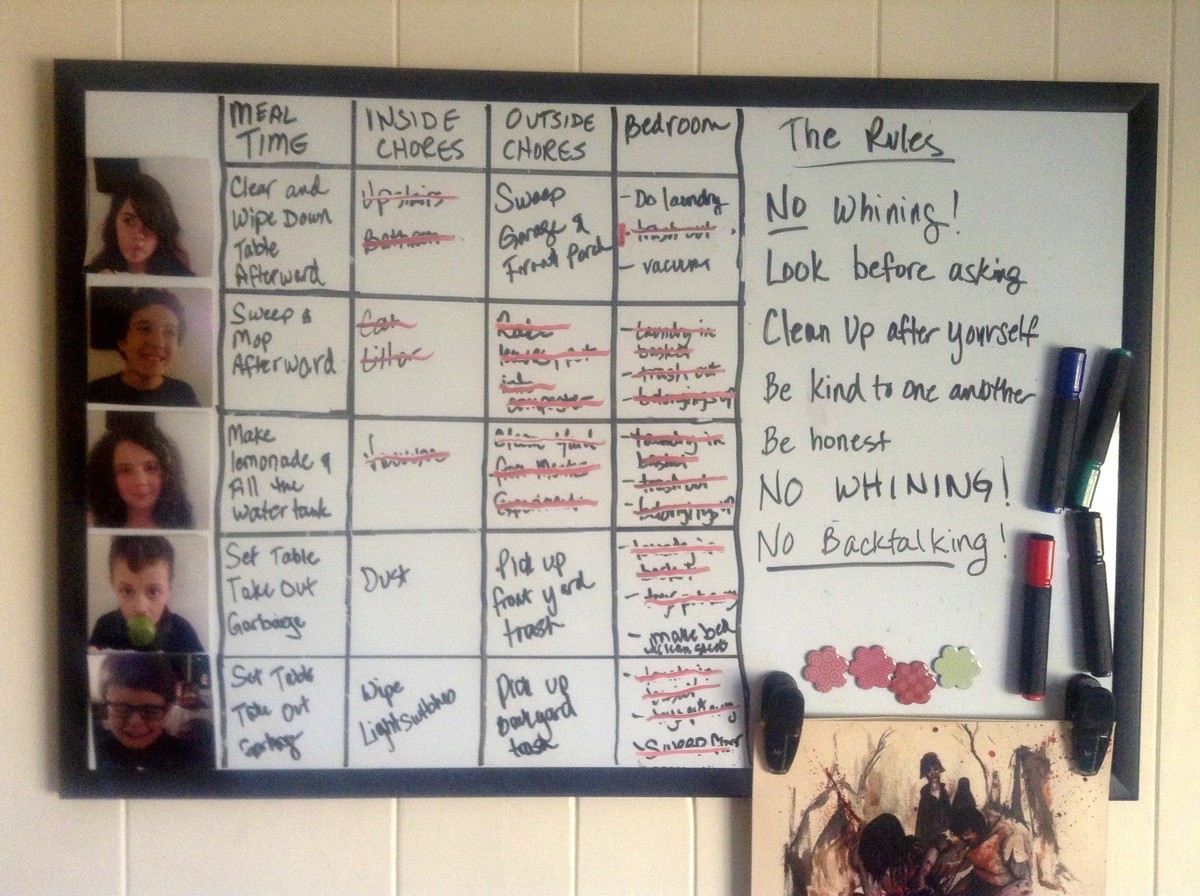 MEAL
TIME
INSIDE
CHORES
OUTSIDE
CHORES
Bedroom
Clear and
Wipe Down
Table
Afterward
Upstairs
Bathroom
Sweep
Garage &
Front Porch
- Do laundry
- trash out
- vacuum
Sweep &
Mop
Afterward
Cat
Litter
Rake
leaves, put
into
composter
- laundry in
basket
- trash out
- belongings up
Make
lemonade &
All the
water tank
Vacuum
- laundry in
basket
- trash out
- belongings up
Set Table
Take Out
Garbage
Dust
Pick up
front yard
trash
- laundry in
basket
- make bed
w/clean sheets
Set Table
Take Out
Garbage
Wipe
Lightswitches
Pick up
backyard
trash
The Rules
NO Whining!
Look before asking
Clean Up after yourself
Be kind to one another
Be honest
NO WHINING!
No Backtalking!